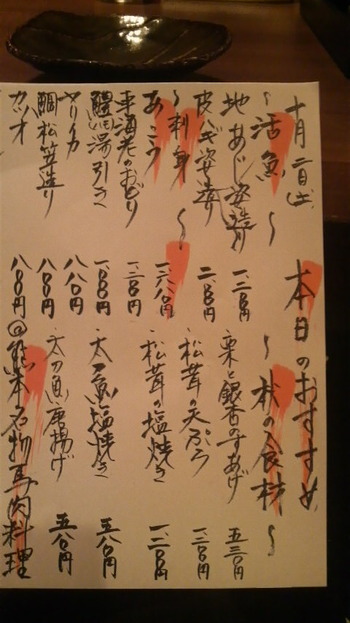 十月二日(土) 本日のおすすめ
~活魚~
地あじ姿造り 一、二〇〇円
皮はぎ姿造り 二、〇〇〇円
~刺身~
あこう 一、二八〇円
車海老のおどり 一、二〇〇円
鱧湯引き 一、〇〇〇円
ヤリイカ 八八〇円
鯛松笠造り 八〇〇円
カツオ 八〇〇円
~秋の食材~
・栗と銀杏の素あげ 五三〇円
・松茸の天ぷら 一、二〇〇円
・松茸の塩焼き 一、二〇〇円
・太刀魚塩焼き 五八〇円
・太刀魚唐揚げ 五八〇円
◎熊本名物馬肉料理